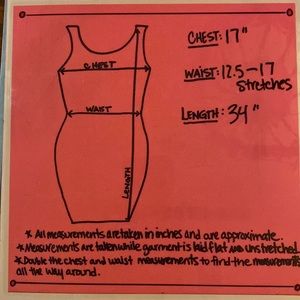 CHEST: 17"
CHEST
WAIST: 12.5-17
Stretches
WAIST
LENGTH: 34"
LENGTH
* All measurements are taken in inches and are approximate.
* Measurements are taken while garment is laid flat unstretched.
* Double the chest and waist measurements to find the measurements
all the way around.